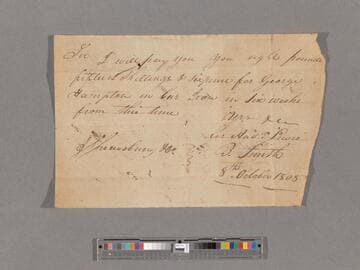 Sir I will pay you you eight pounds
fifteen Shillings & Sixpence for George
Hampton in Bar Iron in Six weeks
from this time
Shrewsbury
J. Smith
8th October 1808